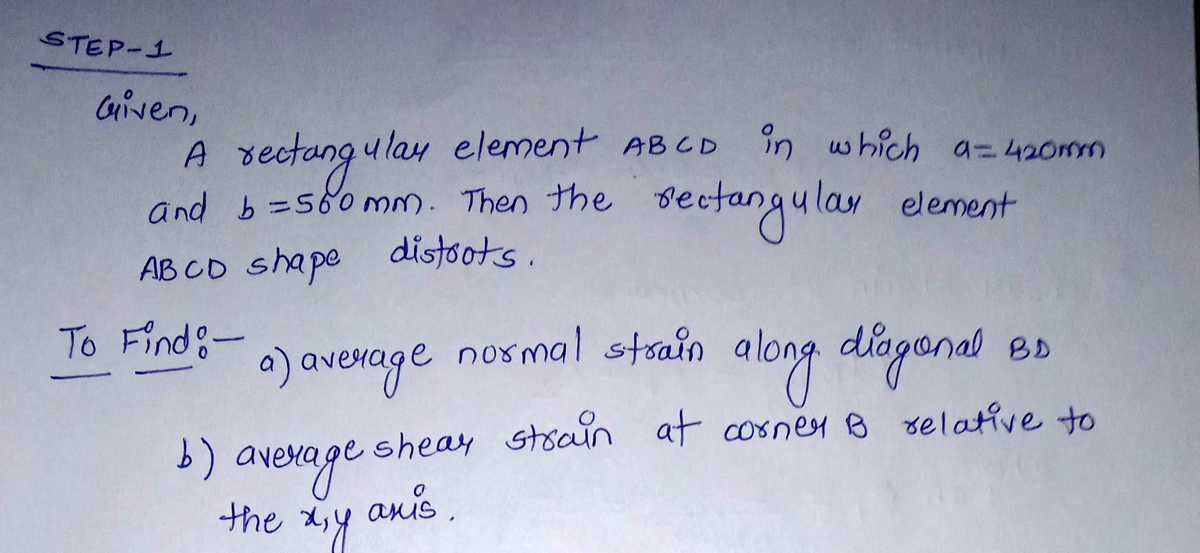 STEP-1
Given,
A rectangular element ABCD in which a=420mm
and b=560mm. Then the rectangular element
ABCD shape distrots.
To Find:- a) average normal strain along diagonal BD
b) average shear strain at corner B relative to
the x,y axis.